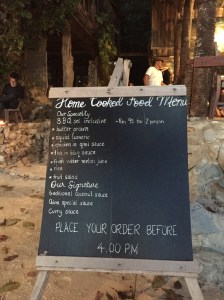 Home Cooked Food Menu
Our Specialty
B.B.Q set inclusive
• butter prawn
• squid tumeric
• chicken in qmai sauce
• fish in bbq sauce
• fresh water melon juice
• rice
• fruit salad
Our Signature
Traditional Coconut sauce
Qmai special sauce
Curry sauce
PLACE YOUR ORDER BEFORE
4.00 PM